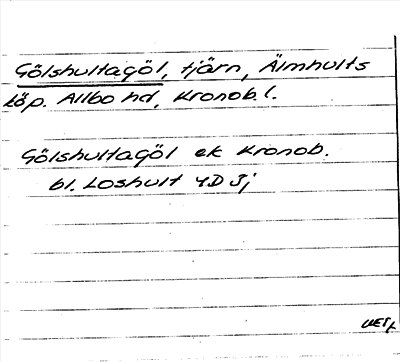 Gölshultagöl, tjärn, Älmhults
köp. Allbo hd, Kronob. l.
Gölshultagöl ek Kronob.
bl. Loshult 4D 3j